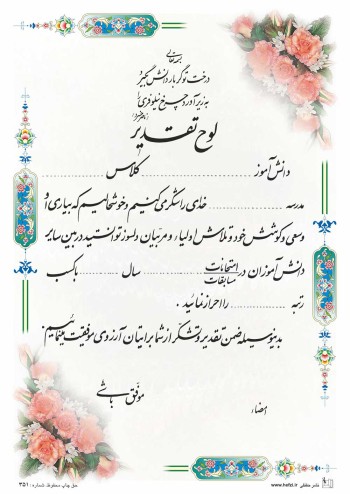 بسمه تعالی
درخت تو گر بار دانش بگیرد
به زیر آورد چرخ نیلوفری را
(ناصرخسرو)
لوح تقدیر
دانش آموز .......... کلاس ..........
مدرسه .......... خدای را شکر می‌کنیم و خوشحالیم که بیاری او
وسعی و کوشش خود و تلاش اولیاء و مربیان دلسوز توانستید در بین سایر
دانش آموزان در امتحانات مسابقات .......... سال .......... با کسب
رتبه .......... را احراز نمائید.
بدینوسیله ضمن تقدیر و تشکر از شما برایتان آرزوی موفقیت می‌نمائیم.
موفق باشی
امضاء
حق چاپ محفوظ شماره: ۳۵۱
www.hafzi.ir